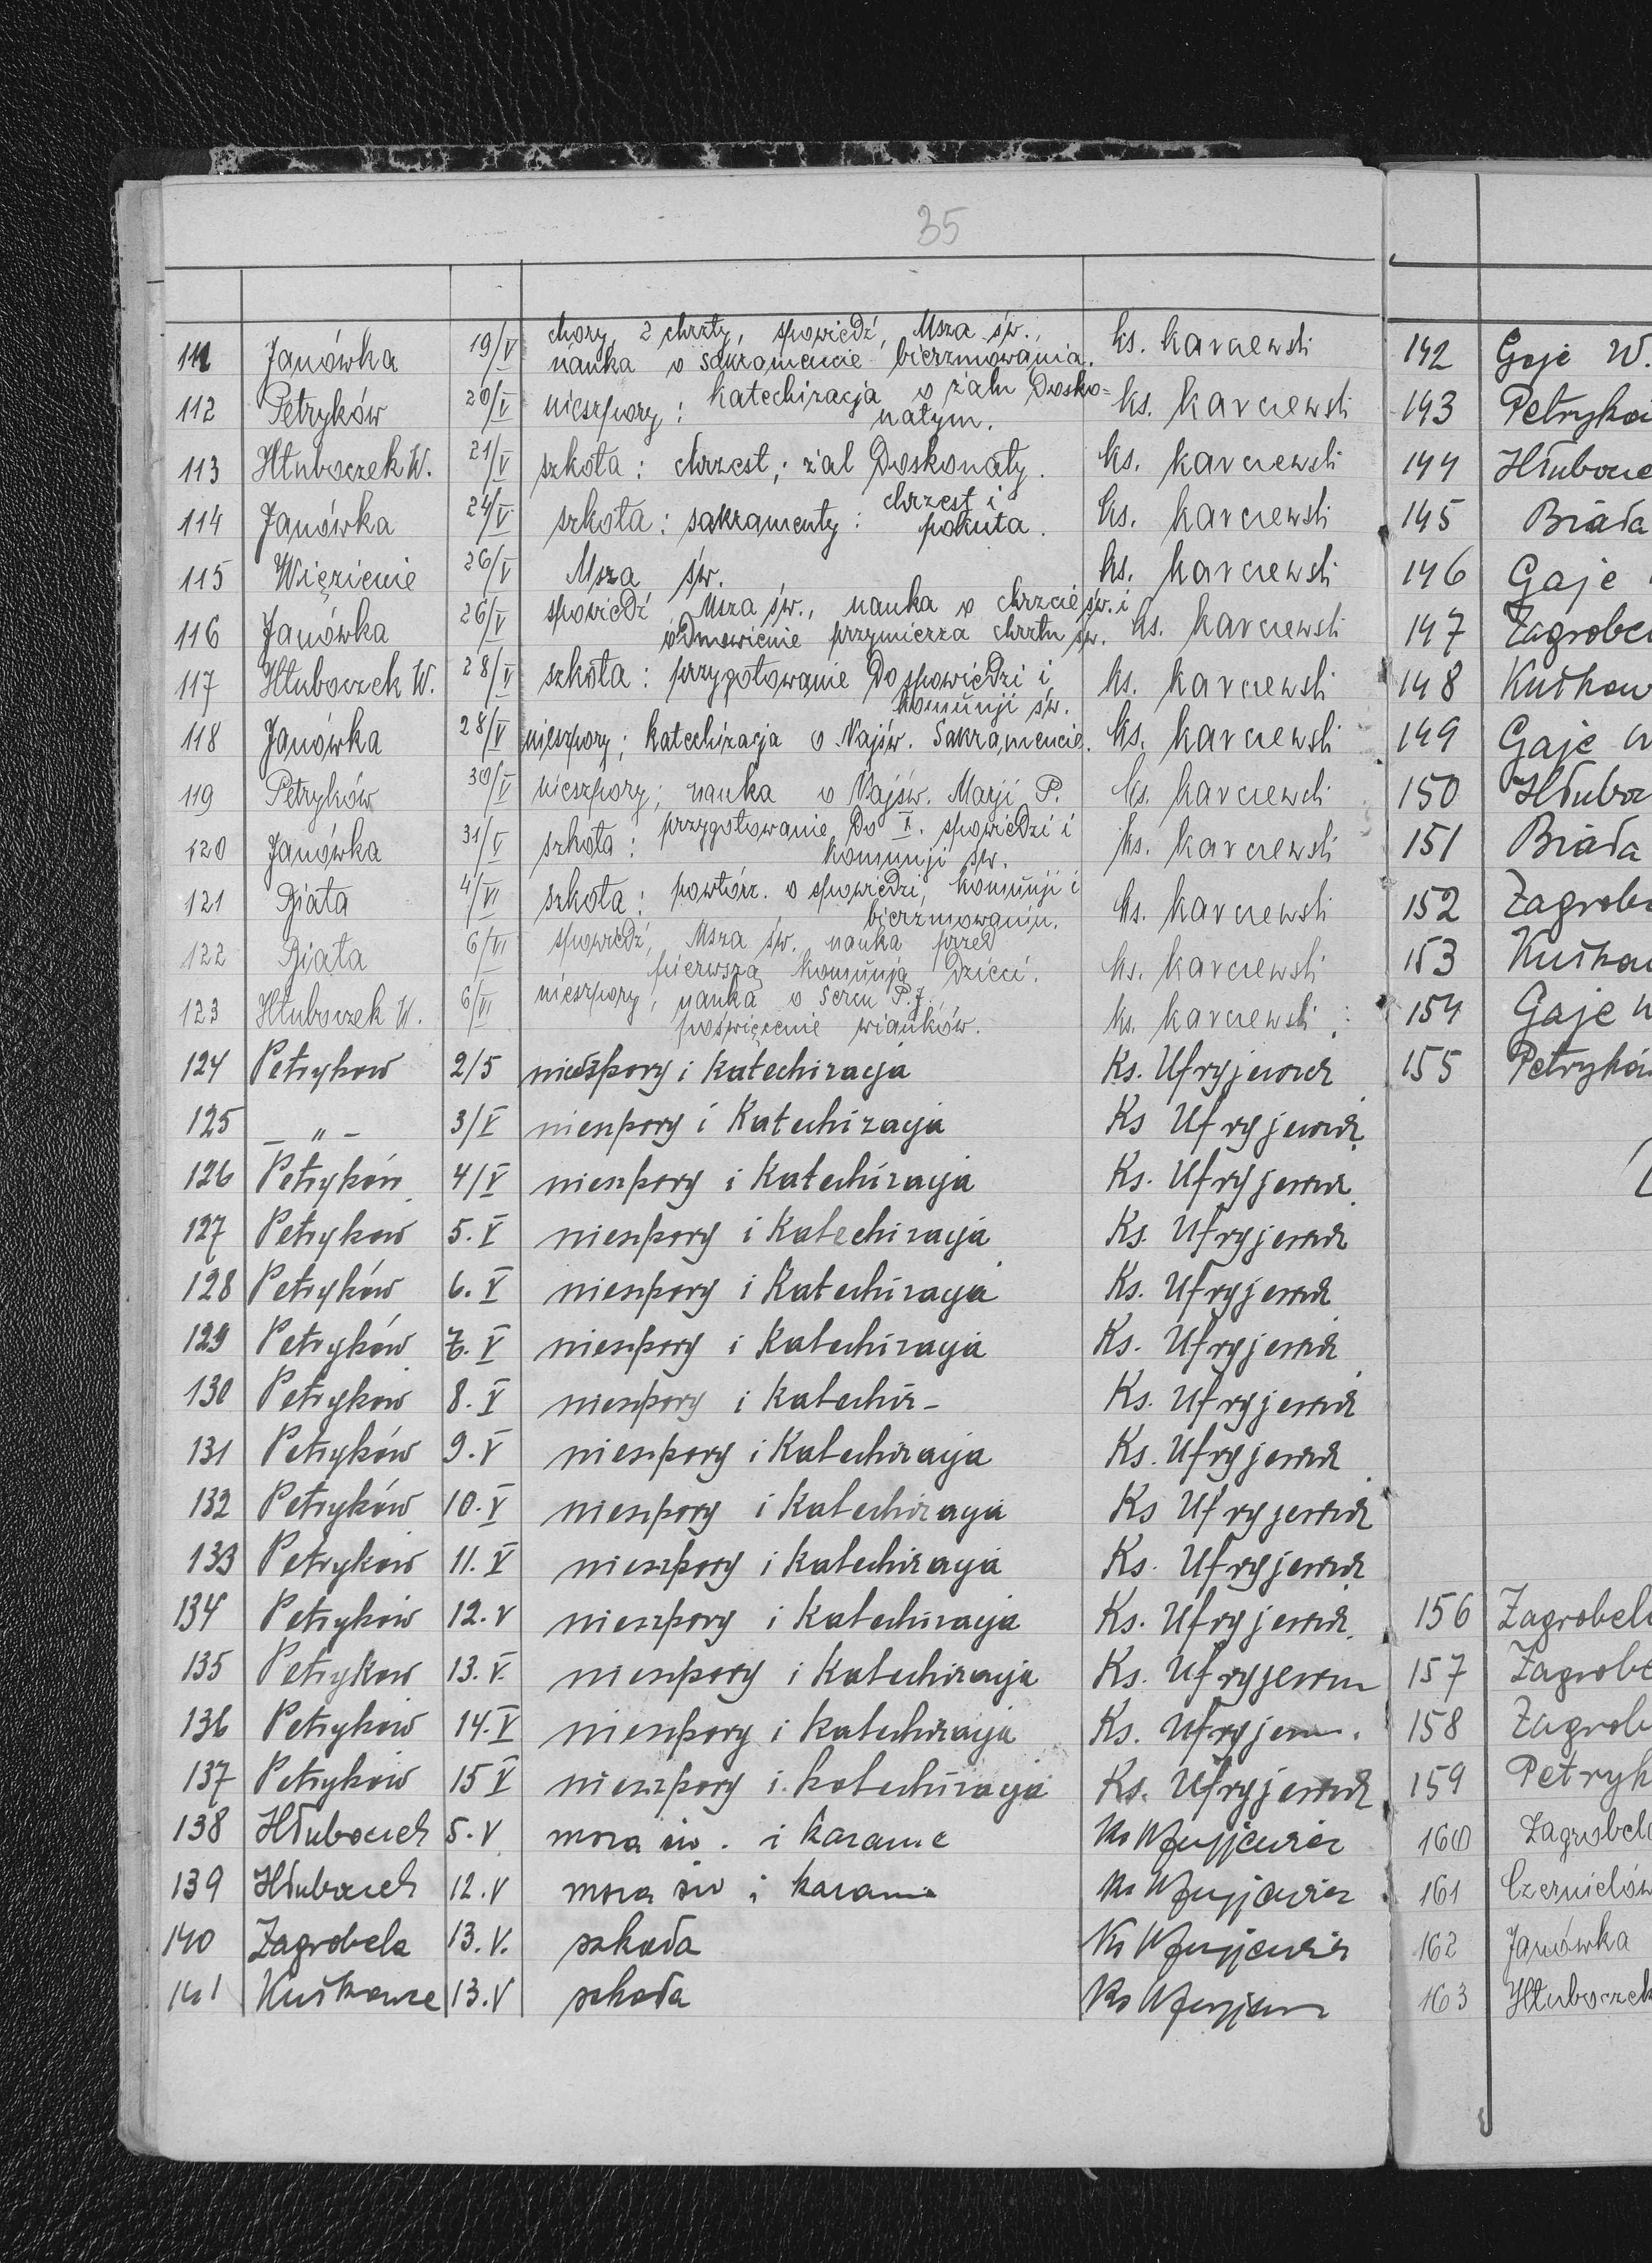 35
111 Janówka 19/V chory, 2 chrzty, spowiedź, Msza św.,
nauka o sakramencie bierzmowania. ks. Karczewski
112 Petryków 20/V nieszpory; katechizacja o żalu dosko=
nałym. ks. Karczewski
113 Hłuboczek W. 21/V szkoła: chrzest; żal doskonały. ks. Karczewski
114 Janówka 24/V szkoła: sakramenty: chrzest i
pokuta. ks. Karczewski
115 Więzienie 26/V Msza św. ks. Karczewski
116 Janówka 26/V spowiedź Msza św., nauka o chrzcie św. i
odmówienie przymierza chrztu św. ks. Karczewski
117 Hłuboczek W. 28/V szkoła: przygotowanie do spowiedzi i
komunji św. ks. Karczewski
118 Janówka 28/V nieszpory; katechizacja o Najśw. Sakramencie. ks. Karczewski
119 Petryków 30/V nieszpory; nauka o Najśw. Marji P. ks. Karczewski
120 Janówka 31/V szkoła: przygotowanie do I. spowiedzi i
komunji św. ks. Karczewski
121 Biała 4/VI szkoła: powtórz. o spowiedzi, komunji i
bierzmowaniu. ks. Karczewski
122 Biała 6/VI spowiedź, Msza św. nauka przed
pierwszą komunją dzieci. ks. Karczewski
123 Hłuboczek W. 6/VI nieszpory, nauka o Sercu P.J.
poświęcenie wianków. ks. Karczewski
124 Petrykow 2/5 nieszpory i katechizacja Ks. Ufryjewicz
125 - " - 3/V nieszpory i katechizacja Ks Ufryjewicz
126 Petryków 4/V nieszpory i katechizacja Ks. Ufryjewicz
127 Petryków 5. V nieszpory i katechizacja Ks. Ufryjewicz
128 Petryków 6. V nieszpory i katechizacja Ks. Ufryjewicz
129 Petryków 7. V nieszpory i katechizacja Ks. Ufryjewicz
130 Petryków 8. V nieszpory i katechiz- Ks. Ufryjewicz
131 Petryków 9. V nieszpory i katechizacja Ks. Ufryjewicz
132 Petryków 10. V nieszpory i katechizacja Ks Ufryjewicz
133 Petryków 11. V nieszpory i katechizacja Ks. Ufryjewicz
134 Petryków 12. V nieszpory i katechizacja Ks. Ufryjewicz
135 Petrykow 13. V. nieszpory i katechizacja Ks. Ufryjewicz
136 Petryków 14. V nieszpory i katechizacja Ks. Ufryjew.
137 Petryków 15 V nieszpory i katechizacja Ks. Ufryjewicz
138 Hłuboczek 5. V msza św. i kazanie Ks Ufryjewicz
139 Hłuboczek 12. V msza św i kazanie Ks Ufryjewicz
140 Zagrobela 13. V. szkoła Ks Ufryjewicz
141 Kutkowce 13. V szkoła Ks Ufryjewicz
142 Gaje W.
143 Petryków
144 Hłubocze
145 Biała
146 Gaje
147 Zagrobel
148 Kutkow
149 Gaje
150 Hłubocz
151 Biała
152 Zagrobe
153 Kutkow
154 Gaje
155 Petryków
156 Zagrobela
157 Zagrobe
158 Zagrob
159 Petryk
160 Zagrobel
161 Czernielów
162 Janówka
163 Hłuboczek